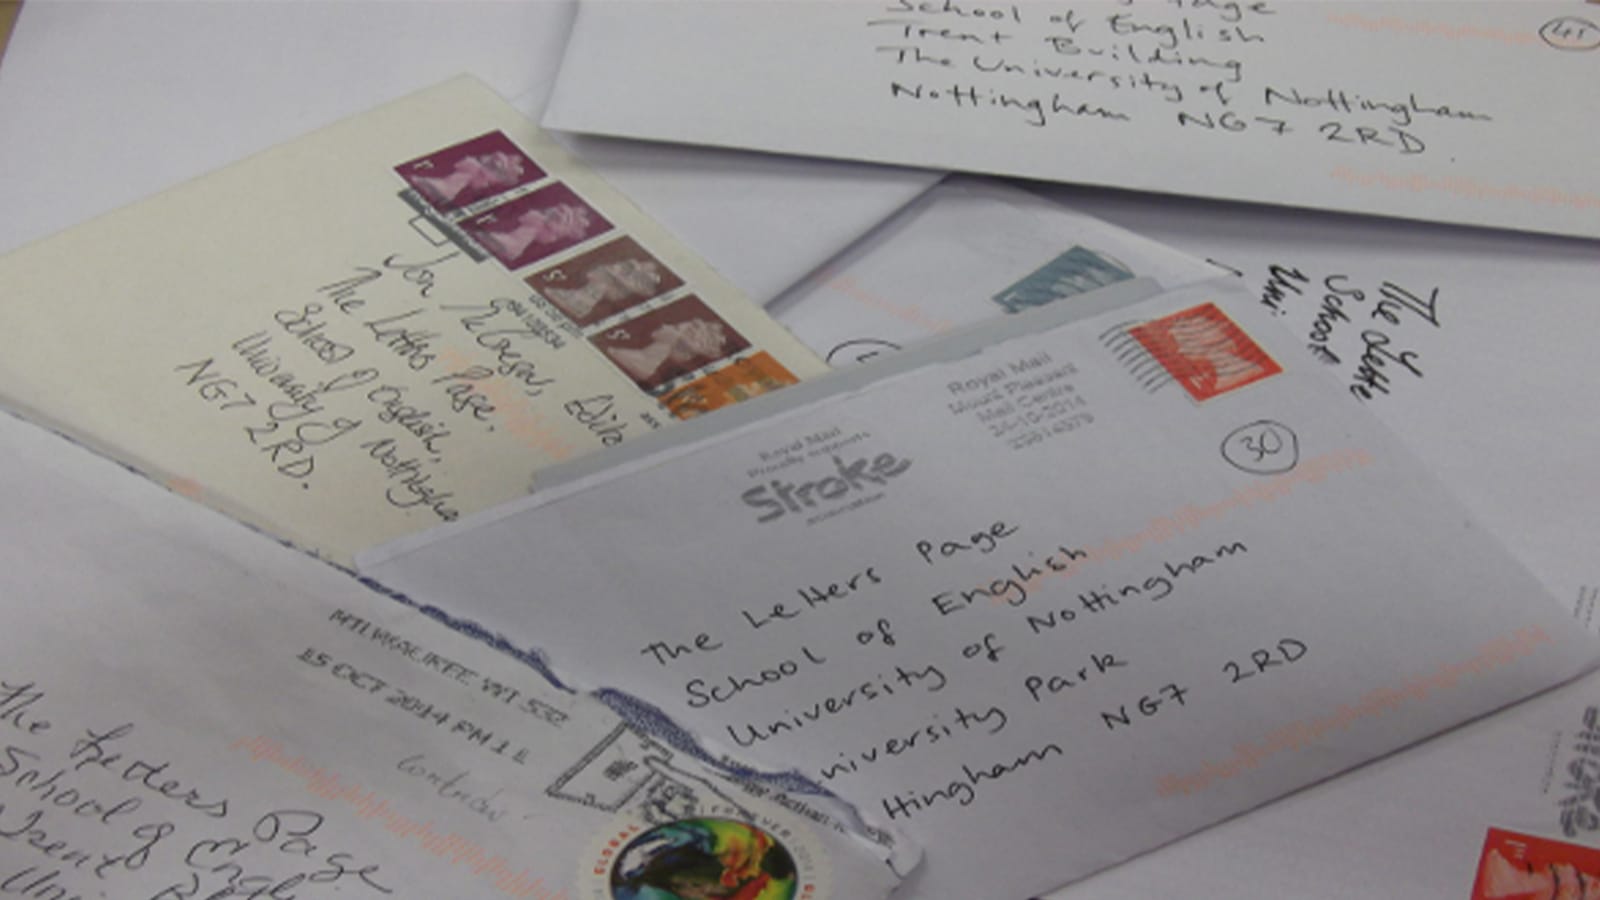 School of English
Trent Building
The University of Nottingham
Nottingham NG7 2RD
45
Jon McGregor, Edito
The Letters Page,
School of English,
University of Nottingha
NG7 2RD.
1st
1st
5p
5p
The Lette
School
Uni
Royal Mail
Mount Pleasant
Mail Centre
Royal Mail
Proudly supports
Stroke
Association
30
The Letters Page
School of English
University of Nottingham
niversity Park
ttingham NG7 2RD
MILWAUKEE WI 532
15 OCT 2014 PM 1 L
The Letters Page
School of Engl
Trent B
Uni
GLOBAL
FOREVER
1st